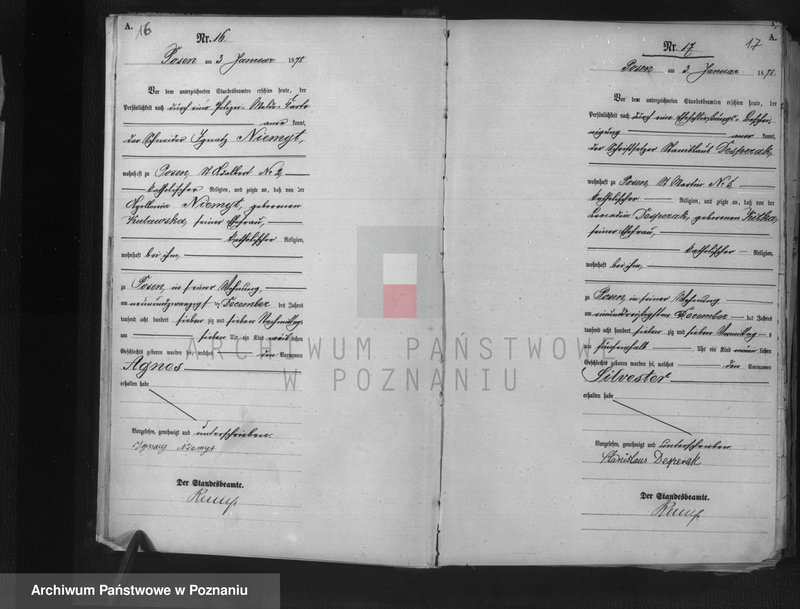 A. 16
Nr. 16
Posen am 3 Januar 1878
Vor dem unterzeichneten Standesbeamten erschien heute, der
Persönlichkeit nach durch eine Polizei-Melde-Karte
aner kannt,
der Schneider Ignatz Niemyt,
wohnhaft zu Posen St Adalbert No 2,
katholischer Religion, und zeigte an, daß von der
Apollonia Niemyt, geborenen
seiner Ehefrau,
katholischer Religion,
wohnhaft bei ihm,
zu Posen in seiner Wohnung,
am neunundzwanzigsten December des Jahres
tausend acht hundert siebenzig und sieben Nachmittags
um sieben Uhr ein Kind weiblichen
Geschlechts geboren worden sei, welches den Vornamen
Agnes
erhalten habe
Vorgelesen, genehmigt und unterschrieben.
Ignacy Niemyt
Der Standesbeamte.
A. 17
Nr. 17
Posen am 3 Januar 1878
Vor dem unterzeichneten Standesbeamten erschien heute, der
Persönlichkeit nach durch eine Eheschließungs-Beschei-
nigung aner kannt,
der Schriftsetzer Stanislaus Desperak,
wohnhaft zu Posen, St Martin No
katholischer Religion, und zeigte an, daß von der
Leocadia Desperak, geborenen
seiner Ehefrau,
katholischer Religion,
wohnhaft bei ihm,
zu Posen in seiner Wohnung
am einunddreißigsten December des Jahres
tausend acht hundert siebenzig und sieben Vormittags
um fünfeinhalb Uhr ein Kind männlichen
Geschlechts geboren worden sei, welches den Vornamen
Silvester
erhalten habe
Vorgelesen, genehmigt und unterschrieben
Stanislaus Desperak
Der Standesbeamte.
ARCHIWUM PAŃSTWOWE
W POZNANIU
Archiwum Państwowe w Poznaniu